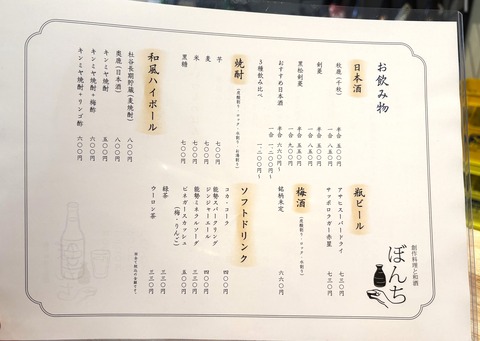 お飲み物
日本酒
秋鹿(千秋)
半合 五〇〇円
一合 八五〇円
剣菱
半合 五〇〇円
一合 八五〇円
黒松剣菱
半合 五五〇円
一合 九〇〇円
おすすめ日本酒
半合 六六〇円〜
一合 一二〇〇円〜
3種飲み比べ 一二〇〇円〜
焼酎
(炭酸割り・ロック・水割り・お湯割り)
芋 七〇〇円
麦 七〇〇円
米 七〇〇円
黒糖 七〇〇円
和風ハイボール
杜谷長期貯蔵(麦焼酎) 八〇〇円
奥鹿(日本酒) 八〇〇円
キンミヤ焼酎 五〇〇円
キンミヤ焼酎+梅酢 六〇〇円
キンミヤ焼酎+リンゴ酢 六〇〇円
瓶ビール
アサヒスーパードライ 七三〇円
サッポロラガー赤星 七三〇円
梅酒
(炭酸割り・ロック・水割り)
銘柄未定 六六〇円
ソフトドリンク
コカ・コーラ 四〇〇円
能勢スパークリング
ジンジャーエール 四〇〇円
能勢ミネラルソーダ 三五〇円
ビネガースカッシュ
(梅・りんご) 五〇〇円
緑茶 三三〇円
ウーロン茶 三三〇円
創作料理と和酒
ぼんち